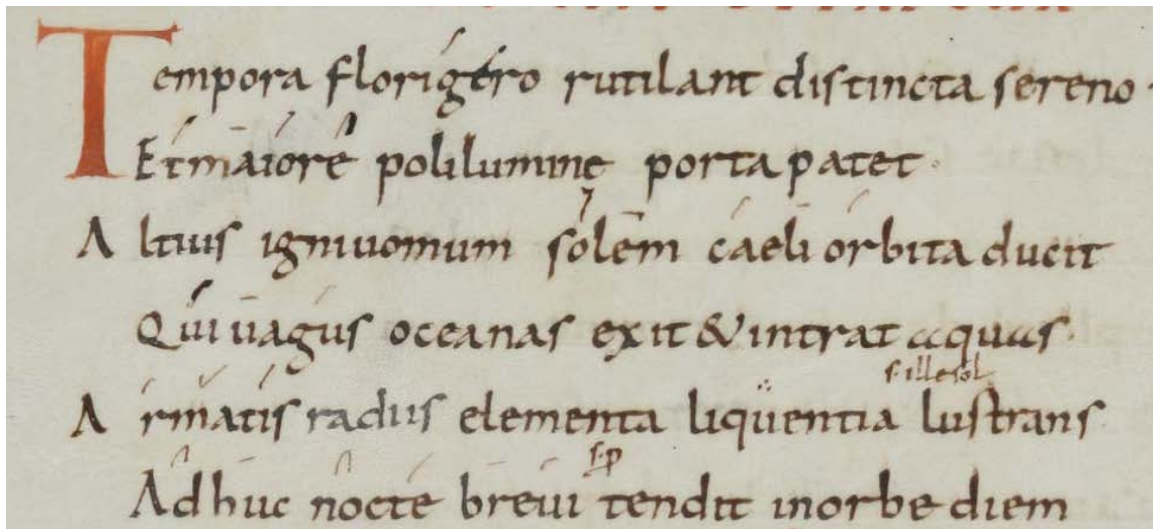 Tempora florigero rutilant distincta sereno.
Et maiore poli lumine porta patet.
Altius igniuomum solem caeli orbita ducit
Qui uagus oceanas exit & intrat aquas.
s. ille sol
Armatis radiis elementa liqüentia lustrans.
s. p
Adhuc nocte breui tendit in orbe diem